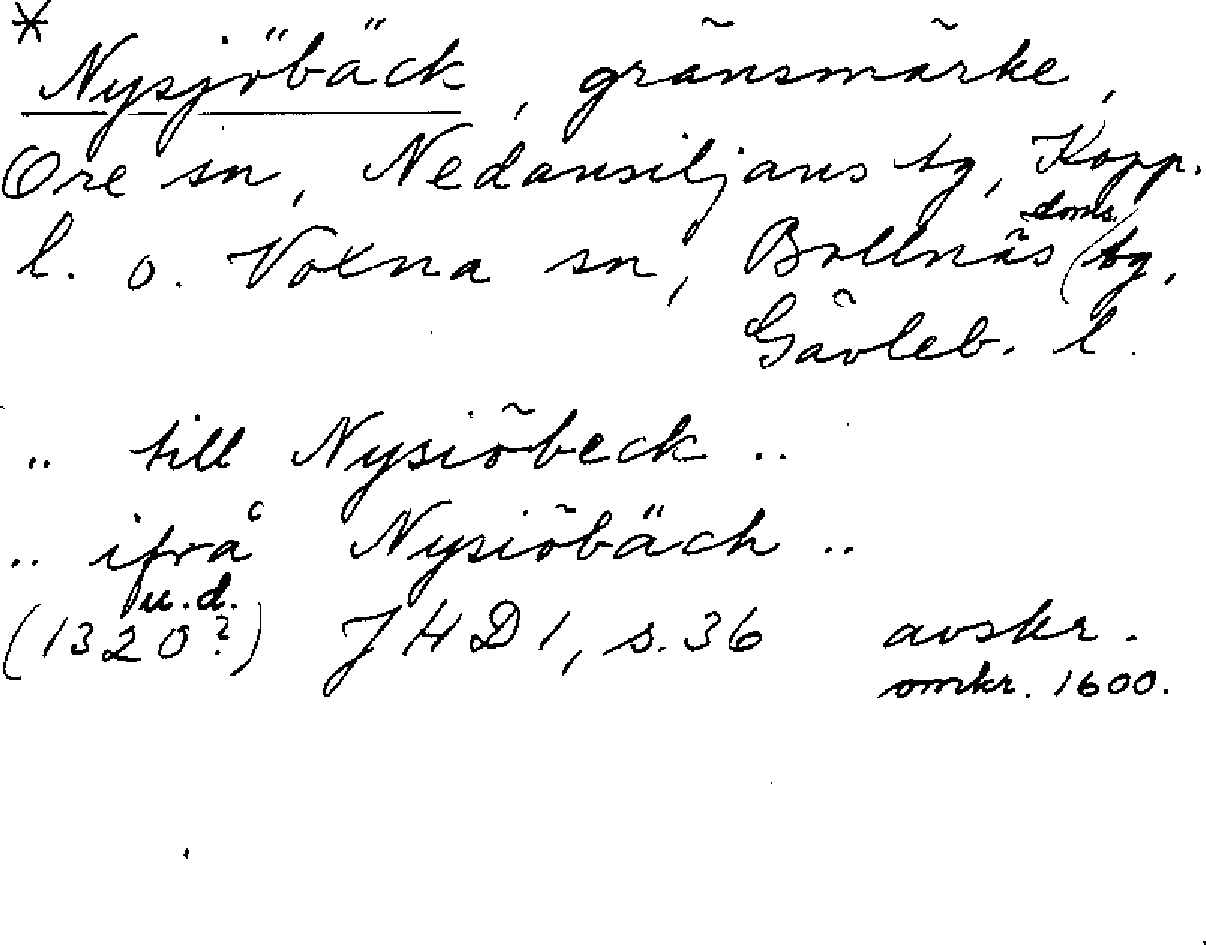 *
Nysjöbäck, gränsmärke,
Ore sn, Nedansiljans tg, Kopp.
l. o. Voxna sn, Bollnäs doms tg,
Gävleb. l.
.. till Nysiöbeck ..
.. ifrå Nysiöbäch ..
u.d.
(1320?) JHD 1, s. 36 avskr.
omkr. 1600.